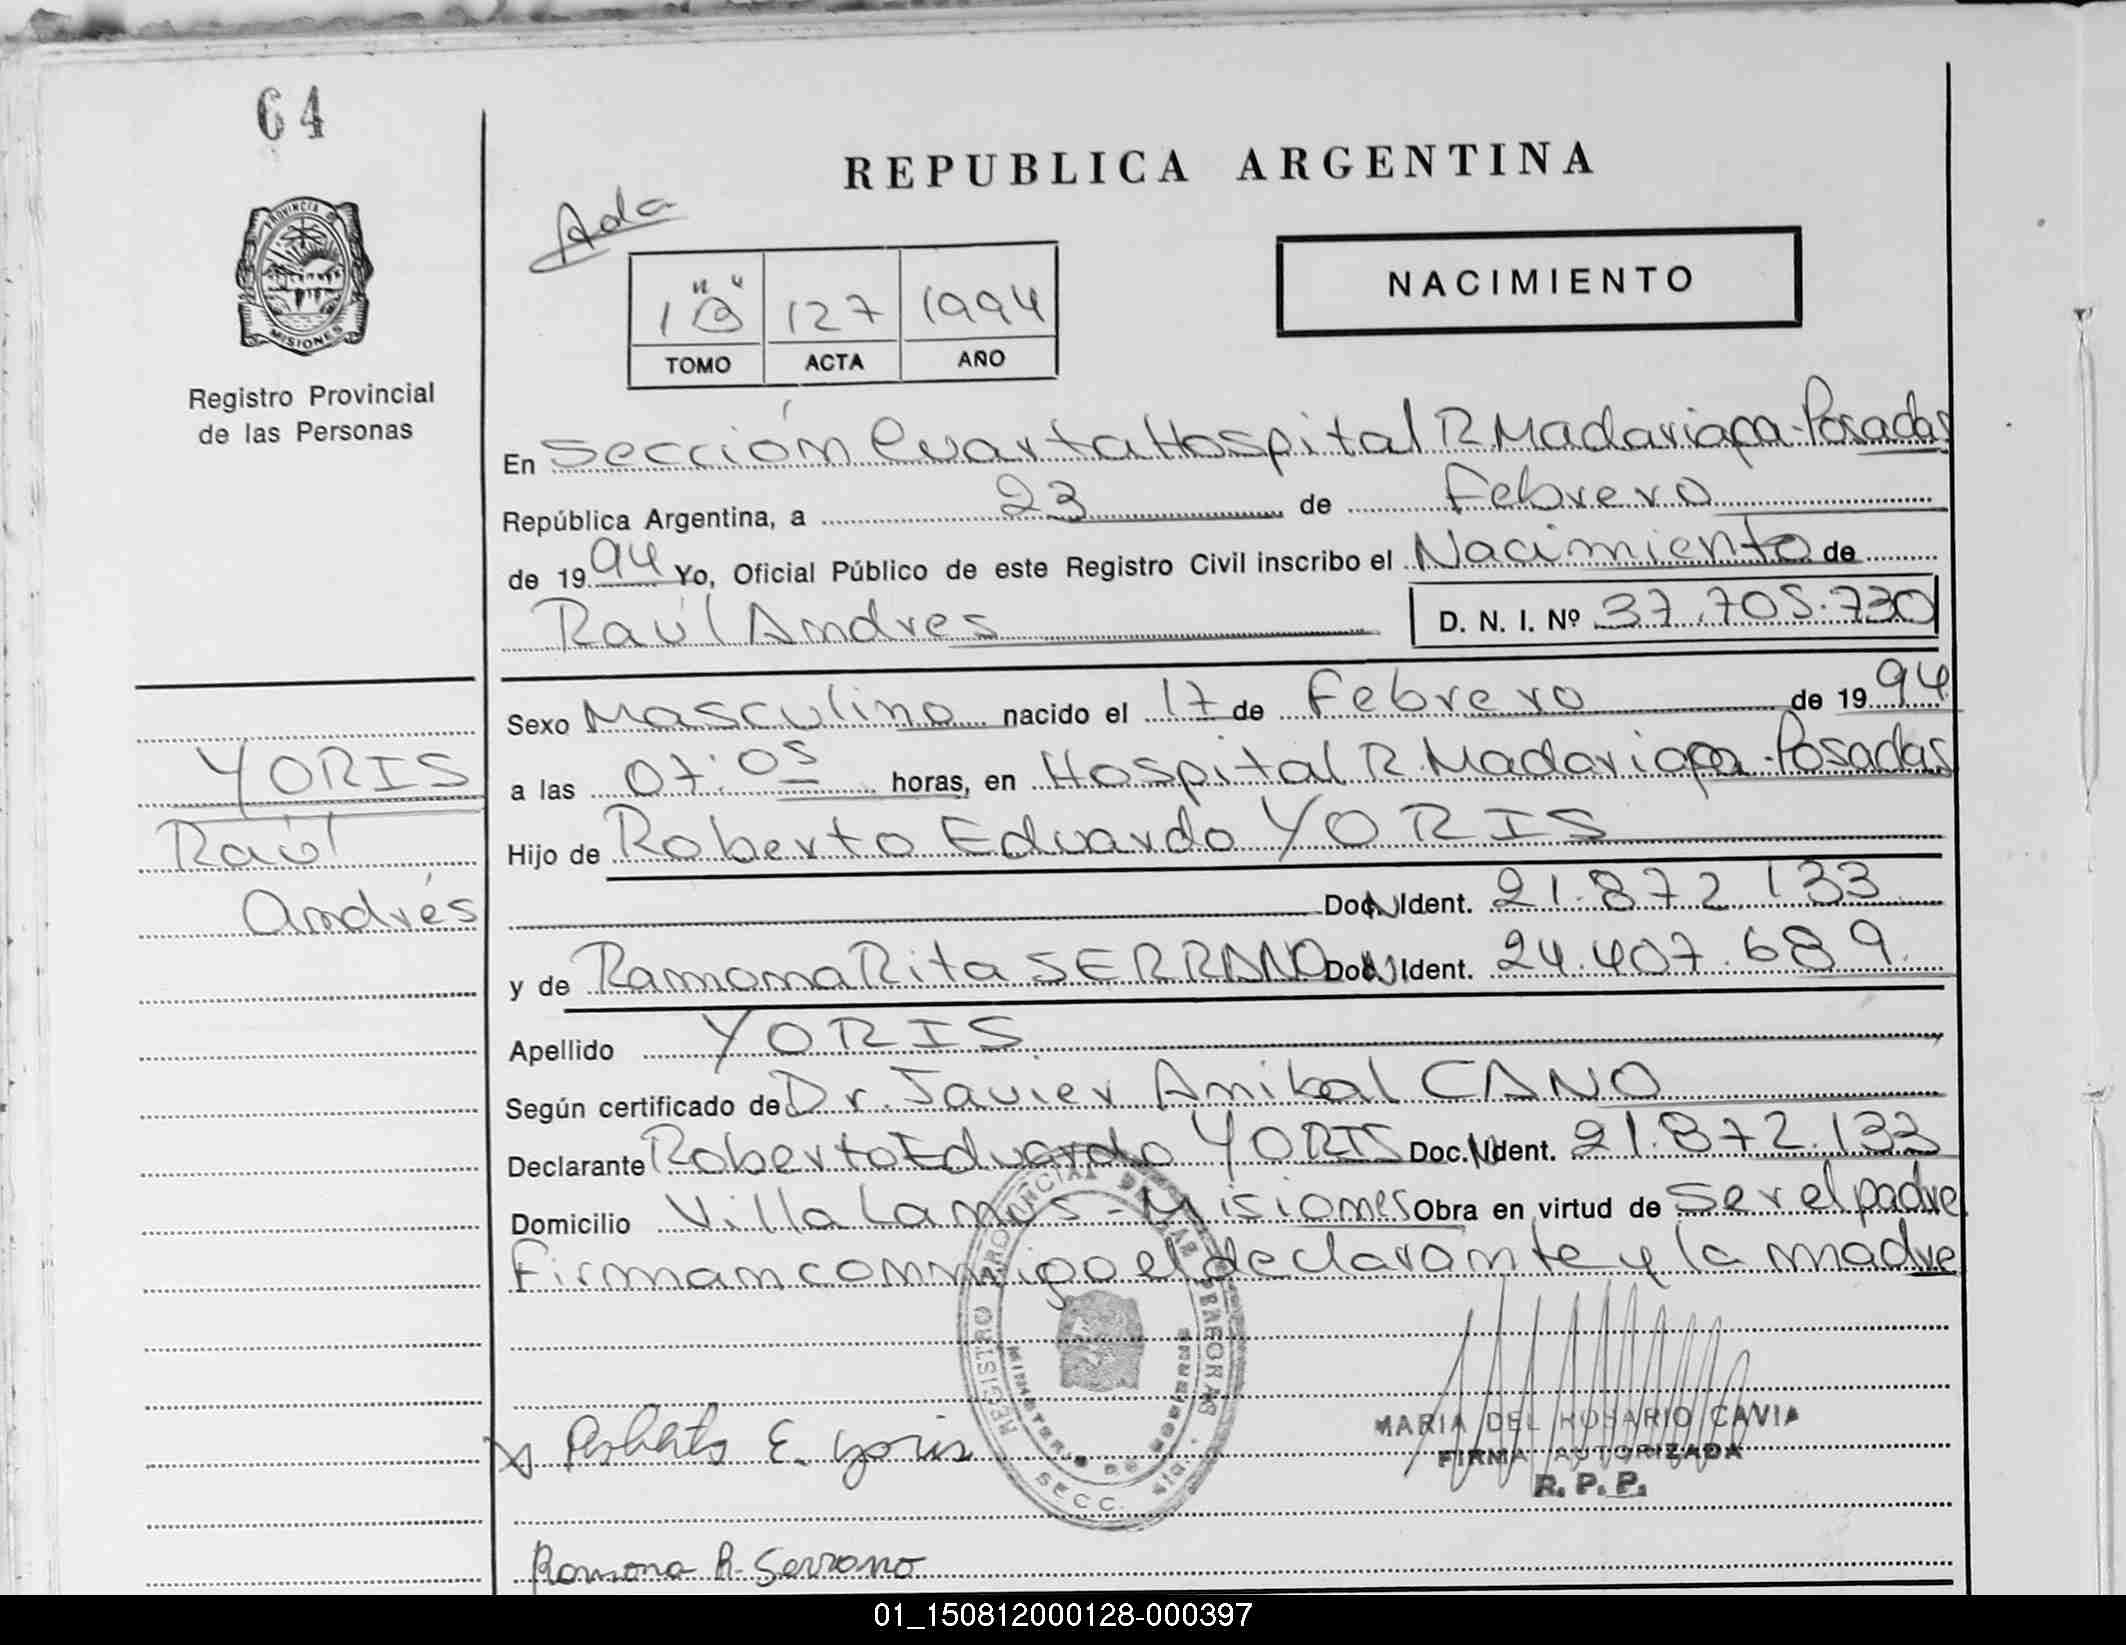 64
REPUBLICA ARGENTINA
Ada
1 "B" 127 1994
TOMO ACTA AÑO
NACIMIENTO
PROVINCIA DE
MISIONES
Registro Provincial
de las Personas
En Sección Cuarta Hospital R Madariaga - Posadas
República Argentina, a 23 de Febrero
de 1994 Yo, Oficial Público de este Registro Civil inscribo el Nacimiento de
Raúl Andres D. N. I. Nº 37.705.730
Sexo Masculino nacido el 17 de Febrero de 1994
a las 07:05 horas, en Hospital R. Madariaga - Posadas
Hijo de Roberto Eduardo YORIS
Doc. N Ident. 21.872.133
y de Ramona Rita SERRANO Doc. N Ident. 24.407.689.
Apellido YORIS
Según certificado de Dr. Javier Anibal CANO
Declarante Roberto Eduardo YORIS Doc. N Ident. 21.872.133
Domicilio Villa Lanús - Misiones Obra en virtud de ser el padre
Firman conmigo el declarante y la madre
YORIS
Raúl
Andrés
REGISTRO PROVINCIAL DE LAS PERSONAS
MINISTERIO DE GOBIERNO
SECC.
Roberto E. Yoris
MARIA DEL ROSARIO CAVIA
FIRMA AUTORIZADA
R. P. P.
Ramona R. Serrano
01_150812000128-000397